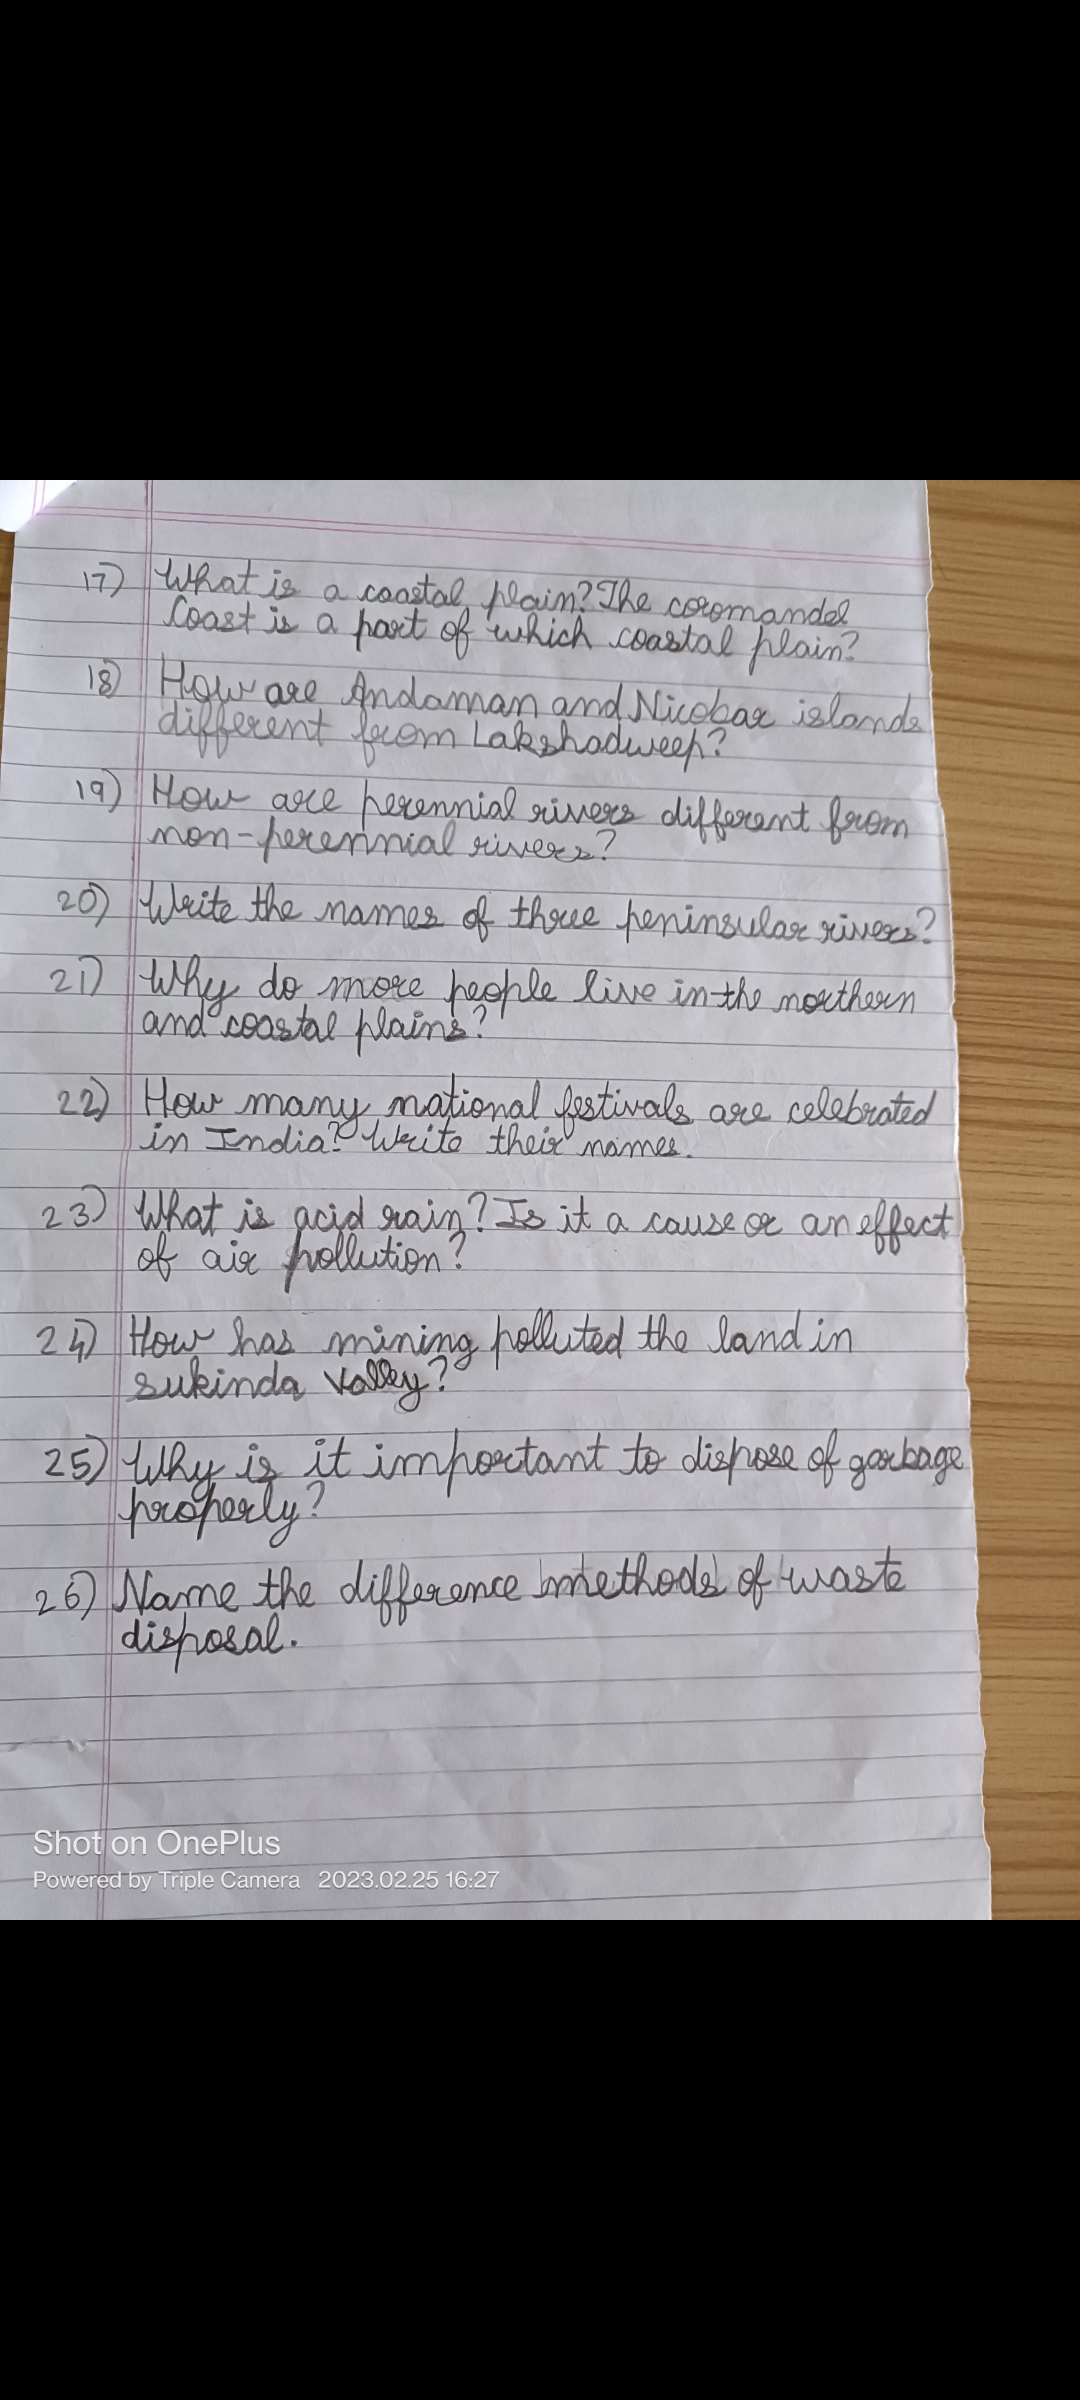 17) What is a coastal plain? The coromandel
Coast is a part of which coastal plain?
18) How are Andaman and Nicobar islands
different from Lakshadweep?
19) How are perennial rivers different from
non-perennial rivers?
20) Write the names of three peninsular rivers?
21) Why do more people live in the northern
and coastal plains?
22) How many national festivals are celebrated
in India? Write their names.
23) What is acid rain? Is it a cause or an effect
of air pollution?
24) How has mining polluted the land in
sukinda valley?
25) Why is it important to dispose of garbage
properly?
26) Name the difference methods of waste
disposal.
Shot on OnePlus
Powered by Triple Camera 2023.02.25 16:27